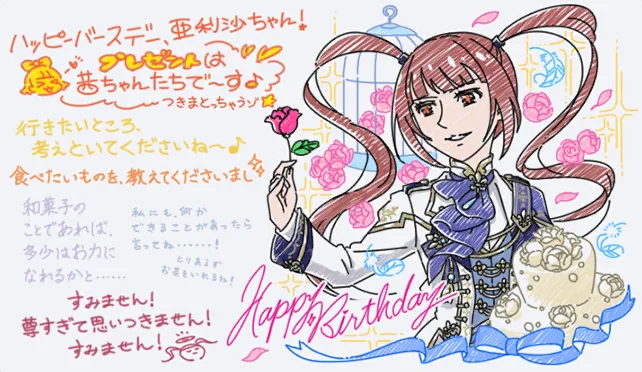 ハッピーバースデー、亜梨沙ちゃん！
プレゼントは
茜ちゃんたちで〜す♪
つきまとっちゃうゾ
行きたいところ、
考えといてくださいね〜♪
食べたいものを、教えてくださいまし
和菓子の
ことであれば、
多少はお力に
なれるかと……
私にも、何か
できることがあったら
言ってね……！
とりあえず
お茶をいれるね！
すみません！
尊すぎて思いつきません！
すみません！
Happy Birthday